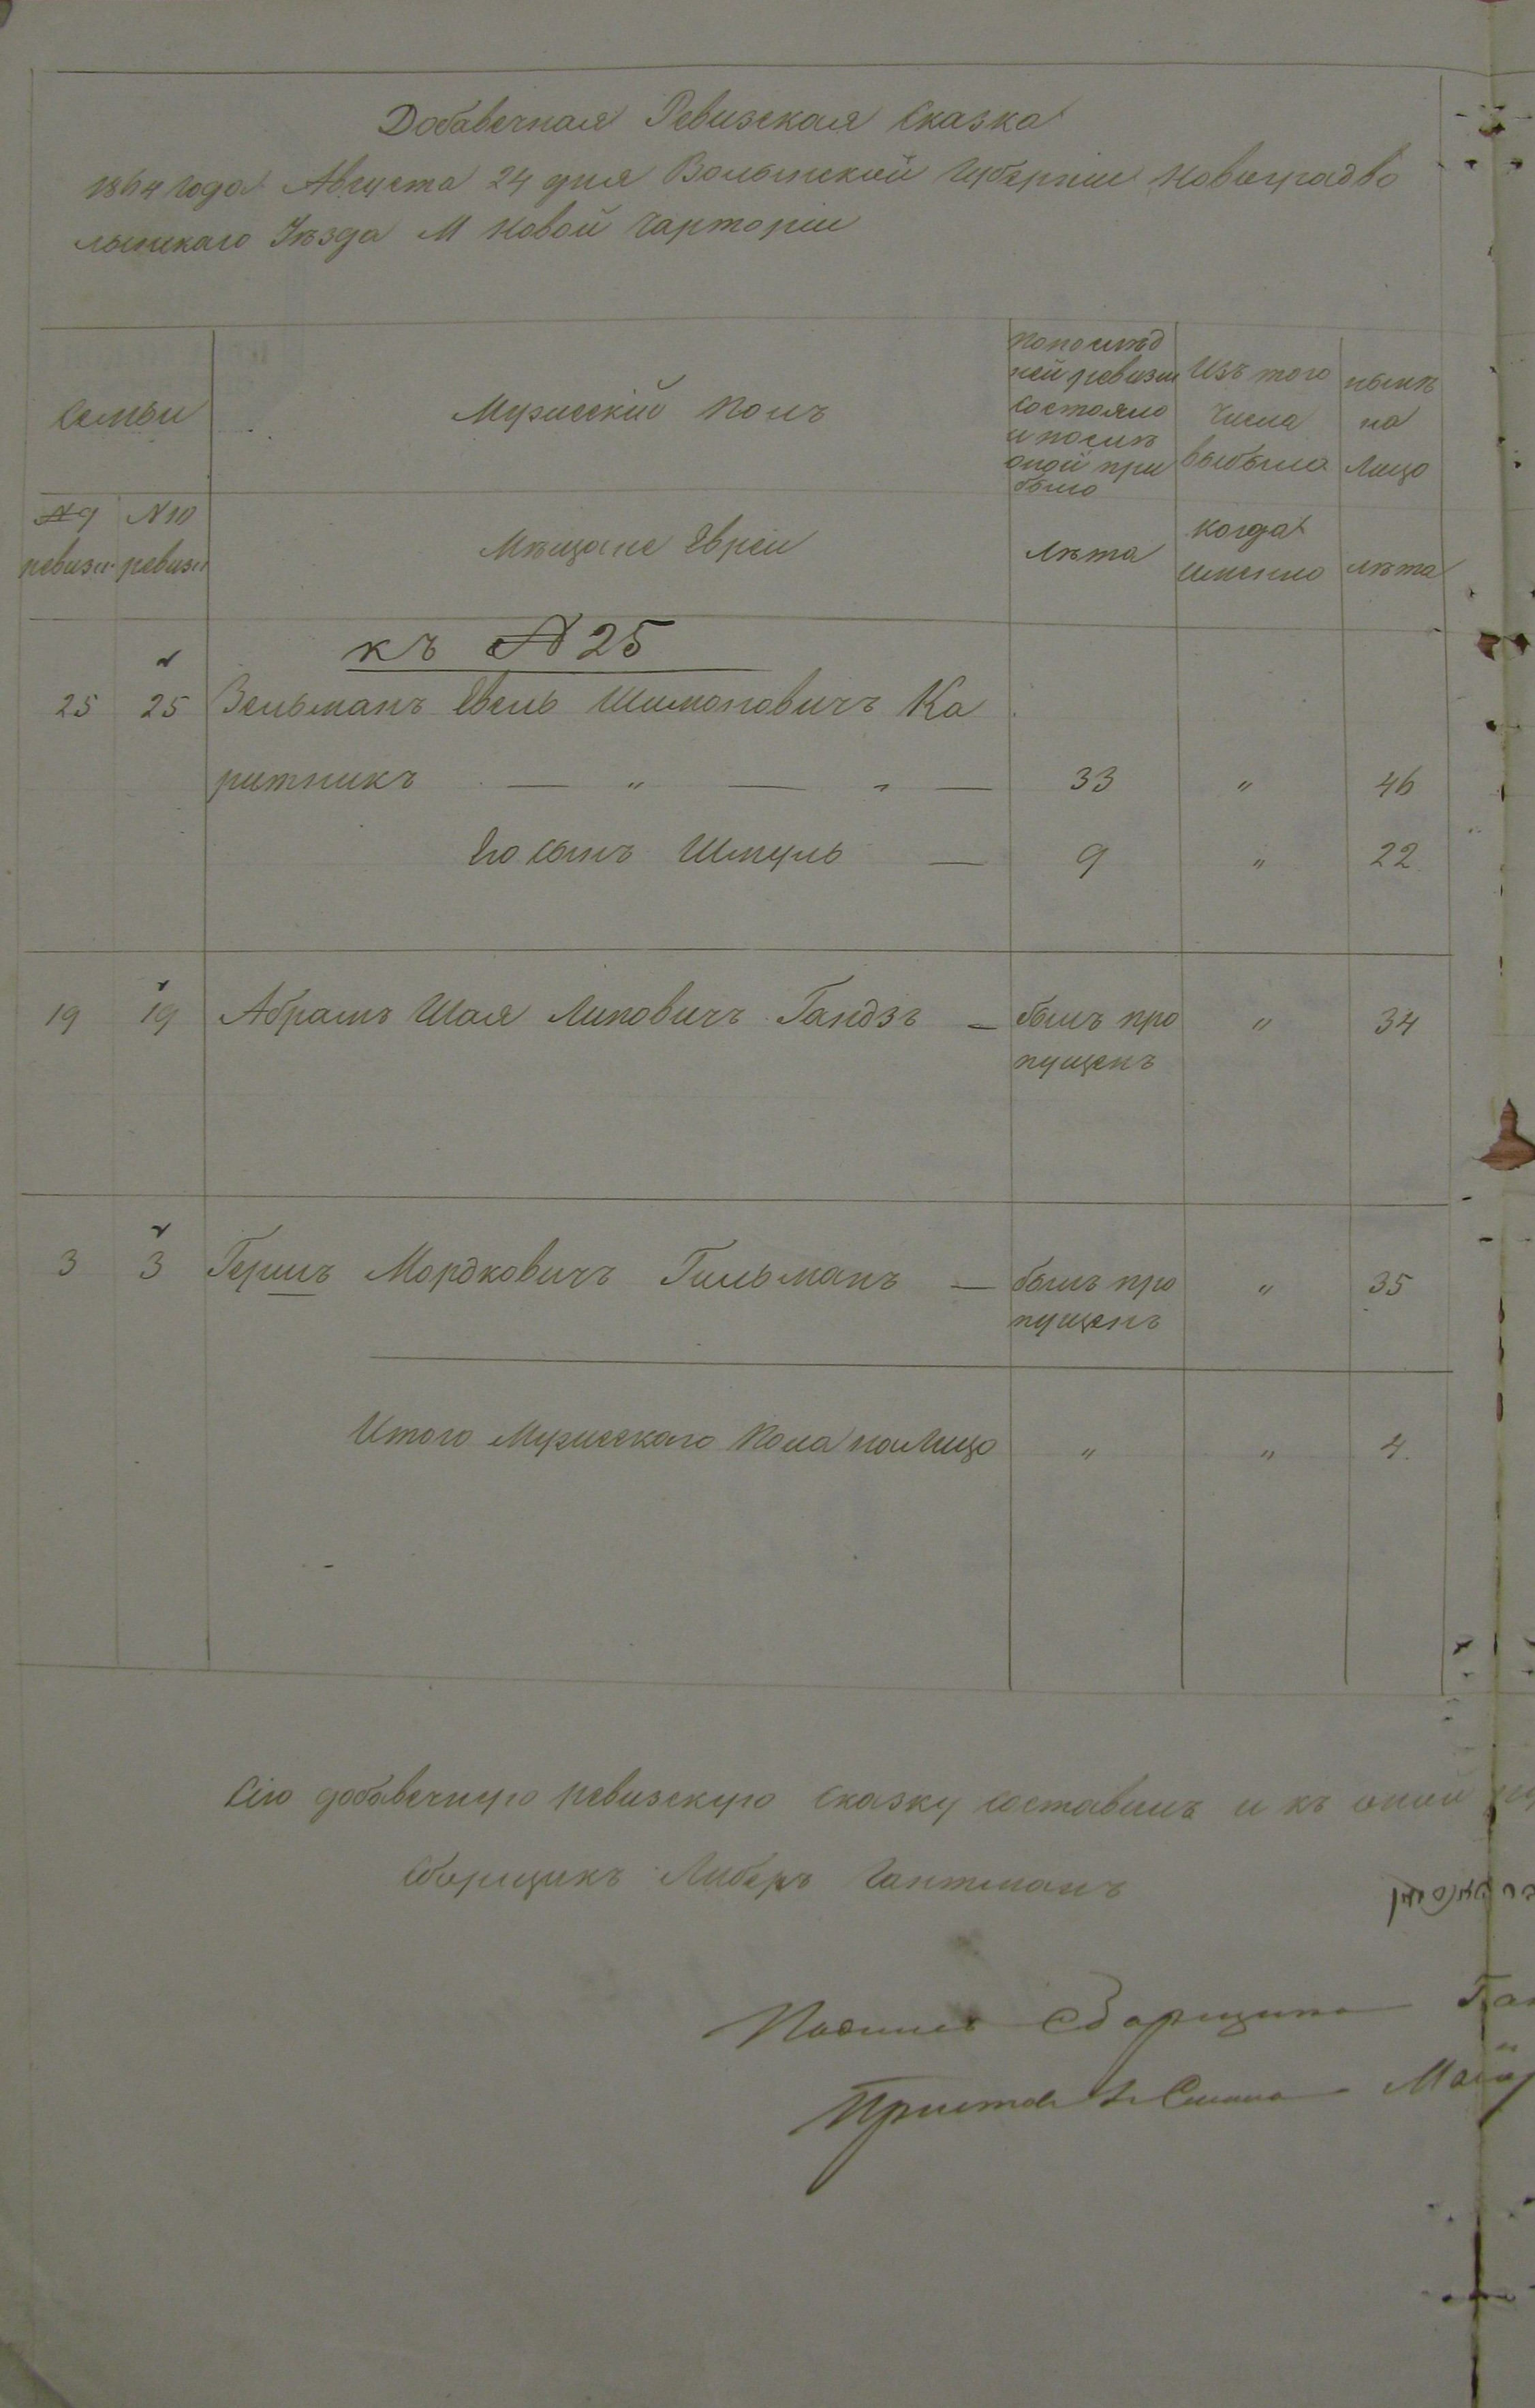 Добавочная Ревизская Сказка
1864 года Августа 24 дня Волынской Губерніи Новоградво
лынскаго Уѣзда М Новой Чарторіи
Семьи
Мужескій Полъ
По послѣд
ней ревизіи
состояло
и послѣ
оной при
было
Изъ того
числа
выбыло
нынѣ
на
лицо
№ 9
ревизіи
№ 10
ревизіи
Мѣщане Евреи
Лѣта
когда
именно
лѣта
къ № 25
25 25 Зельманъ Евель Шимоновичъ Ка
ритникъ — " — " — 33 " 46
Его сынъ Шмуль — 9 " 22
19 19 Абрамъ Шая Липовичъ Гандзъ — былъ про " 34
пущенъ
3 3 Гершъ Мордковичъ Гильманъ — былъ про " 35
пущенъ
Итого Мужескаго Пола на Лицо " " 4.
Сію добавочную ревизскую сказку составилъ и къ оной
Сборщикъ Либеръ Гантманъ
Сборщика